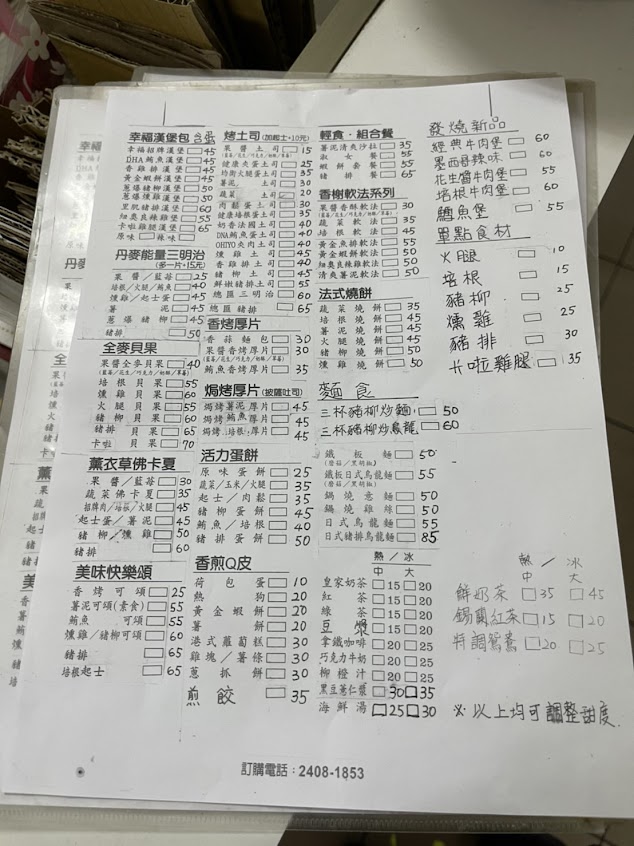 幸福漢堡包 含蛋
幸福招牌漢堡 45
DHA鮪魚漢堡 50
香雞排漢堡 45
黃金蝦餅漢堡 50
蔥爆豬柳漢堡 50
里肌豬排漢堡 60
細奧良辣雞堡 55
卡啦雞腿漢堡 65
原味 辣味
丹麥能量三明治
(多一片-15元)
果醬/藍苺 25
培根/火腿/鮪魚 40
燻雞/起士蛋 45
薯泥 45
蔥爆豬柳 45
豬排 50
全麥貝果
果醬全麥貝果 40
(藍莓/花生/巧克力/奶酥/草莓)
培根貝果 55
燻雞貝果 60
火腿貝果 55
豬柳貝果 60
豬排貝果 65
卡啦貝果 70
薰衣草佛卡夏
果醬/藍苺 30
蔬菜佛卡夏 35
招牌肉/培根/火腿 45
起士蛋/薯泥 45
豬柳/燻雞 50
豬排 60
美味快樂頌
香烤可頌 25
薯泥可頌(素食) 55
鮪魚可頌 55
燻雞/豬柳可頌 60
豬排 65
培根起士 65
烤土司 (加起士+10元)
果醬土司 15
(藍莓/花生/巧克力/奶酥/草莓)
健康夾蛋土司 25
均衡火腿蛋土司 35
薯泥土司 30
蔬菜土司 20
肉鬆蛋土司 30
健康培根蛋土司 35
奶香法國土司 40
DNA鮪魚蛋土司 40
OHIYO夾肉土司 40
燻雞土司 45
香雞土司 40
豬柳土司 45
鮮嫩豬排土司 55
總匯三明治 60
總匯豬排 65
香烤厚片
香蒜麵包 30
果醬香烤厚片 30
(藍莓/花生/巧克力/奶酥/草莓)
鮪魚香烤厚片 35
焗烤厚片 (披薩吐司)
焗烤薯泥厚片 45
焗烤鮪魚厚片 45
焗烤培根厚片 45
活力蛋餅
原味蛋餅 25
蔬菜/玉米/火腿 35
起士/肉鬆 35
豬柳蛋餅 45
鮪魚/培根 40
豬排蛋餅 50
香煎Q皮
荷包蛋 10
熱狗 20
黃金蝦餅 20
薯餅 20
港式蘿蔔糕 30
雞塊/薯條 30
蔥抓餅 30
煎餃 35
輕食．組合餐
薯泥清爽沙拉 35
淑女餐 55
蝦餅套餐 55
豬排餐 65
香榭軟法系列
果醬香酥軟法 30
(藍莓/花生/巧克力/奶酥/草莓)
蔬菜軟法 35
培根軟法 45
黃金魚排軟法 55
黃金蝦餅軟法 50
細奧良辣雞軟法 50
清爽薯泥軟法 50
法式燒餅
蔬菜燒餅 35
培根燒餅 45
薯泥燒餅 45
火腿燒餅 45
豬柳燒餅 50
燻雞燒餅 50
麵食
三杯豬柳炒麵 50
三杯豬柳炒烏龍 60
鐵板麵 50
(蘑菇/黑胡椒)
鐵板日式烏龍麵 55
(蘑菇/黑胡椒)
鍋燒意麵 50
鍋燒雞絲 50
日式烏龍麵 55
日式豬排烏龍麵 85
熱/冰
中 大
皇家奶茶 15 20
紅茶 15 20
綠茶 15 20
豆漿 15 20
拿鐵咖啡 20 25
巧克力牛奶 20 25
柳橙汁 20 25
黑豆薏仁漿 30 35
海鮮湯 25 30
發燒新品
經典牛肉堡 60
墨西哥辣味 60
花生醬牛肉堡 55
培根牛肉堡 60
鱈魚堡 55
單點食材
火腿 10
培根 15
豬柳 25
燻雞 25
豬排 30
卡啦雞腿 35
熱/冰
中 大
鮮奶茶 35 45
錫蘭紅茶 15 20
特調鴛鴦 20 25
※以上均可調整甜度.
訂購電話：2408-1853